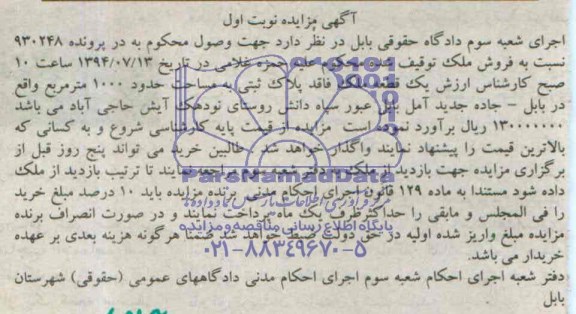 آگهی مزایده نوبت اول
اجرای شعبه سوم دادگاه حقوقی بابل در نظر دارد جهت وصول محکوم به در پرونده ۹۳۰۲۴۸
نسبت به فروش ملک توقیف شده محکوم علیه حمزه غلامی در تاریخ ۱۳۹۴/۰۷/۱۳ ساعت ۱۰
صبح کارشناس ارزش یک قطعه ملک فاقد پلاک ثبتی به مساحت حدود ۱۰۰۰ مترمربع واقع
در بابل – جاده جدید آمل پل عبور سپاه دانش روستای نودهک آیش حاجی آباد می باشد
۱۳۰۰۰۰۰۰۰۰ ریال برآورد نموده است مزایده از قیمت پایه کارشناسی شروع و به کسانی که
بالاترین قیمت را پیشنهاد نمایند واگذار خواهد شد طالبین خرید می تواند پنج روز قبل از
برگزاری مزایده جهت بازدید از ملک به دفتر شعبه سوم مراجعه نمایند تا ترتیب بازدید از ملک
داده شود مستندا به ماده ۱۲۹ قانون اجرای احکام مدنی برنده مزایده باید ۱۰ درصد مبلغ خرید
را فی المجلس و مابقی را حداکثر ظرف یک ماه پرداخت نمایند و در صورت انصراف برنده
مزایده مبلغ واریز شده اولیه در حق دولت ضبط خواهد شد ضمنا هرگونه هزینه بعدی بر عهده
خریدار می باشد.
دفتر شعبه اجرای احکام شعبه سوم اجرای احکام مدنی دادگاههای عمومی (حقوقی) شهرستان
بابل
ParsNamadData
مرکز فرآوری اطلاعات پارس نماد داده ها
پایگاه اطلاع رسانی مناقصه و مزایده
۰۲۱-۸۸۳۴۹۶۷۰-۵